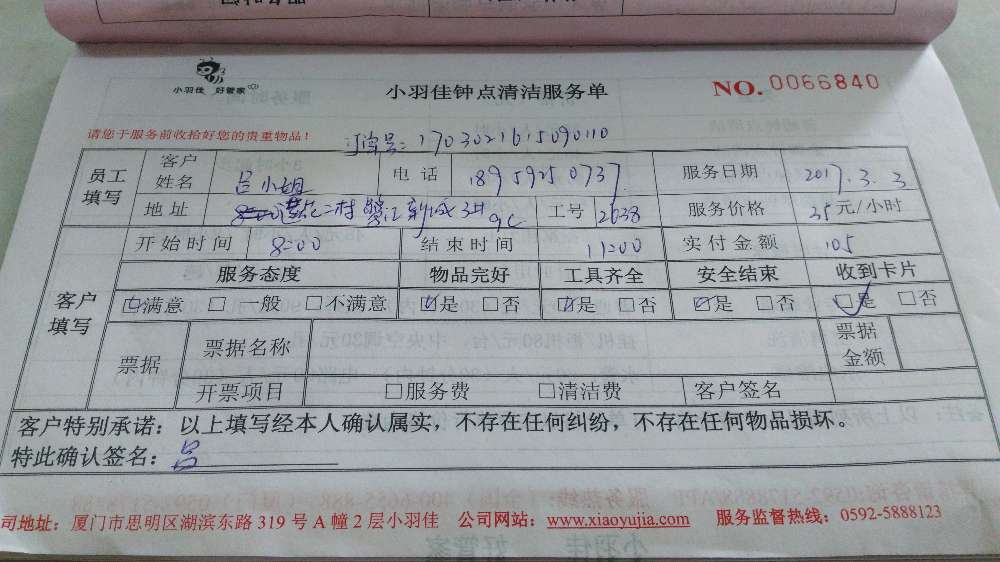 小羽佳 好管家
小羽佳钟点清洁服务单
NO.0066840
请您于服务前收拾好您的贵重物品!
订单号: 1703021615090110
员工填写 客户姓名 吕小姐 电话 18959250737 服务日期 2017.3.3
地址 莲花二村 新城 9C 工号 2638 服务价格 35元/小时
客户填写 开始时间 8:00 结束时间 11:00 实付金额 105
服务态度 物品完好 工具齐全 安全结束 收到卡片
☑满意 □一般 □不满意 ☑是 □否 ☑是 □否 ☑是 □否 ☑是 □否
票据 票据名称 票据金额
开票项目 □服务费 □清洁费 客户签名
客户特别承诺：以上填写经本人确认属实，不存在任何纠纷，不存在任何物品损坏。
特此确认签名：吕
司地址：厦门市思明区湖滨东路 319 号 A 幢 2 层小羽佳 公司网站：www.xiaoyujia.com 服务监督热线：0592-5888123